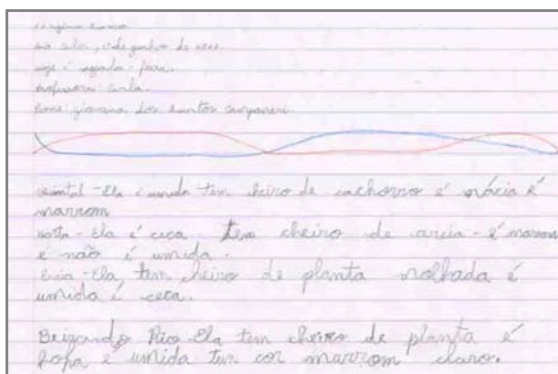 são carlos, de junho de
hoje é segunda - feira.
professora: carla.
nome: giovana dos santos
Ela é umida tem cheiro de cachorro é mácia é
marrom
Ela é ceca tem cheiro de areia - é marrom
e não é umida.
Ela tem cheiro de planta molhada é
umida é ceca.
Beirando Rio Ela tem cheiro de planta é
fofa é umida tem cor marrom claro.